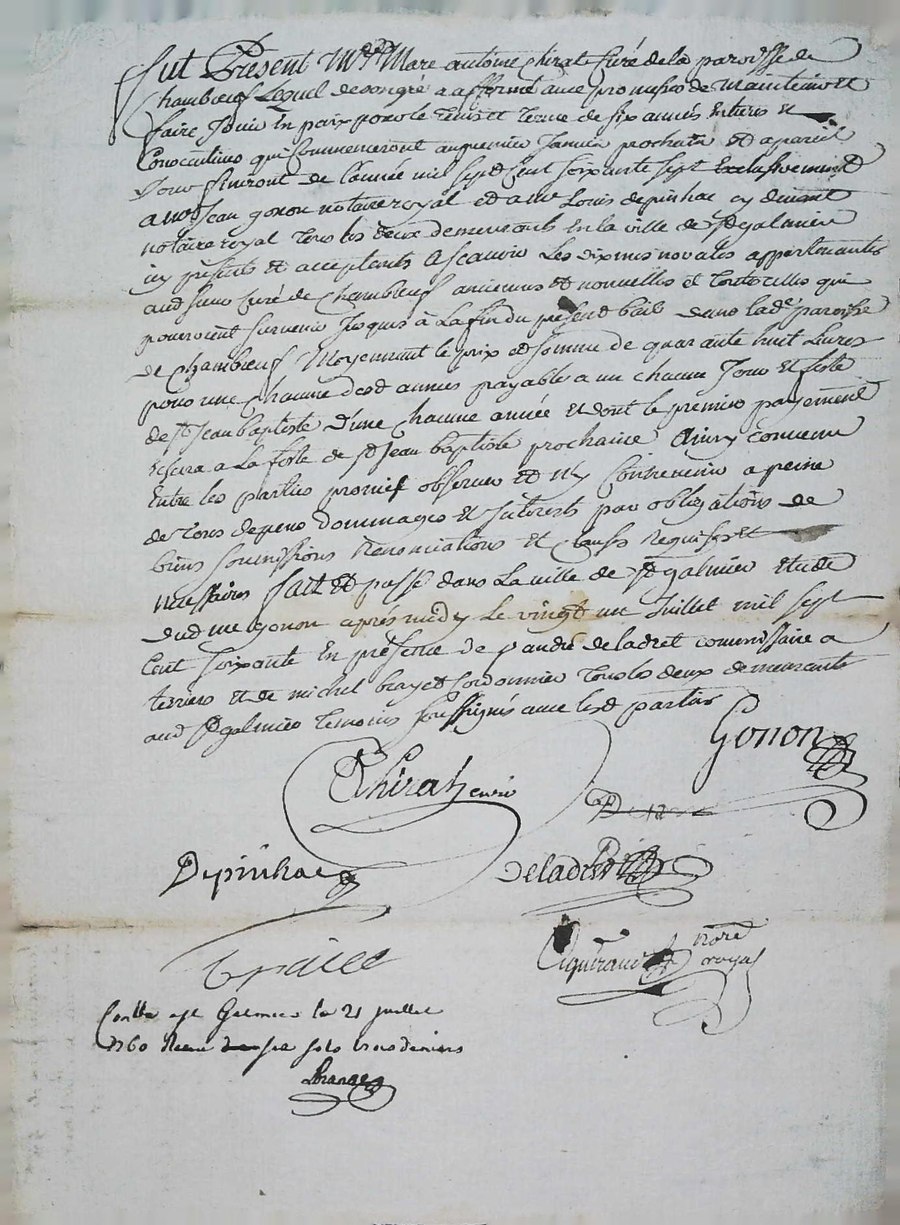 fut Present Mre Marc antoine chirat Curé de la paroisse de
Chambœuf Lequel de son gré a affermé avec promesse de maintenir et
faire Jouir En paix pour le tems et terme de six années Entieres et
Consecutives qui Commenceront au premier Janvier prochain et a pareil
Jour finiront de l'année mil sept Cent soixante sept Exclusivement
a me Jean gonon notaire royal et a me Louis depinhac cy devant
notaire royal tous les deux demeurants En la ville de st galmier
icy presents et acceptants ascavoir Les dixmes novales appartenantes
aud sieur Curé de Chambœuf anciennes et nouvelles et toutes celles qui
pourroient survenir Jusques à La fin du présent bail dans lade paroisse
de Chambœuf Moyennant le prix et somme de quarante huit Livres
pour une chacune desd années payable a un chacun Jour et feste
de st Jean baptiste d'une chacune année et dont le premier payement
sera a La feste de st Jean baptiste prochaine Ainsy convenu
Entre les parties promis observer et n'y Contrevenir a peine
de tous depens dommages et Interests par obligations de
biens soumissions Renonciations et clauses requises et
necessaires fait et passé dans La ville de st galmier etude
dud me gonon après midy Le vingt un Juillet mil sept
Cent soixante En présence de andré deladret commissaire a
terriers et de michel cordonnier tous les deux demeurants
aud st galmier temoins soussignés avec lesd parties
Gonon
Chirat curé
Depinhac
deladret
nore
royal
Conlle a st Galmier le 21 juillet
1760 Recu sols trois deniers